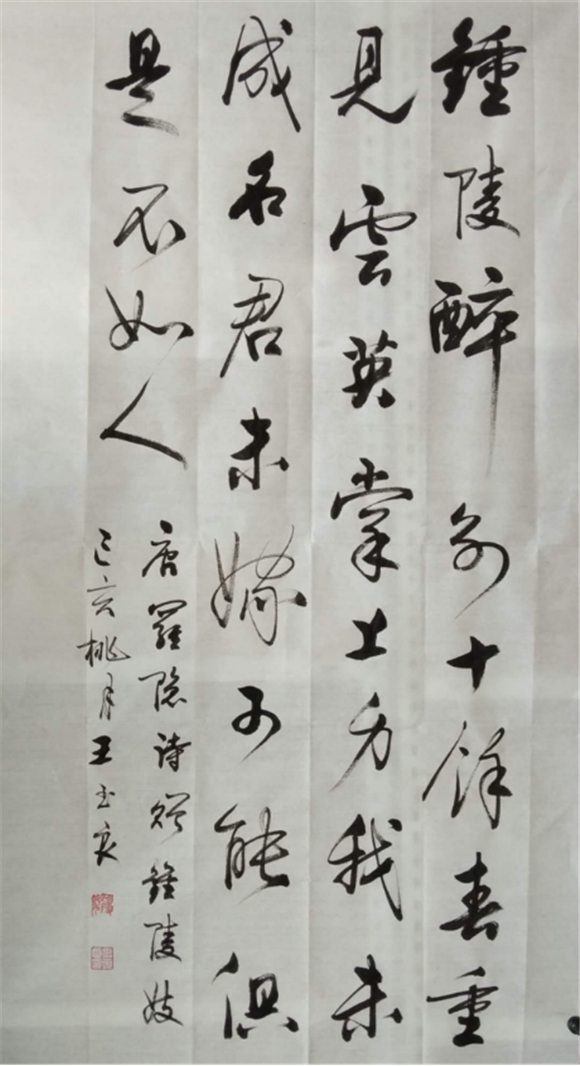 鍾陵醉別十餘春重
見雲英掌上身我未
成名君未嫁可能俱
是不如人
唐羅隐诗贈鍾陵妓
己亥桃月王玉良